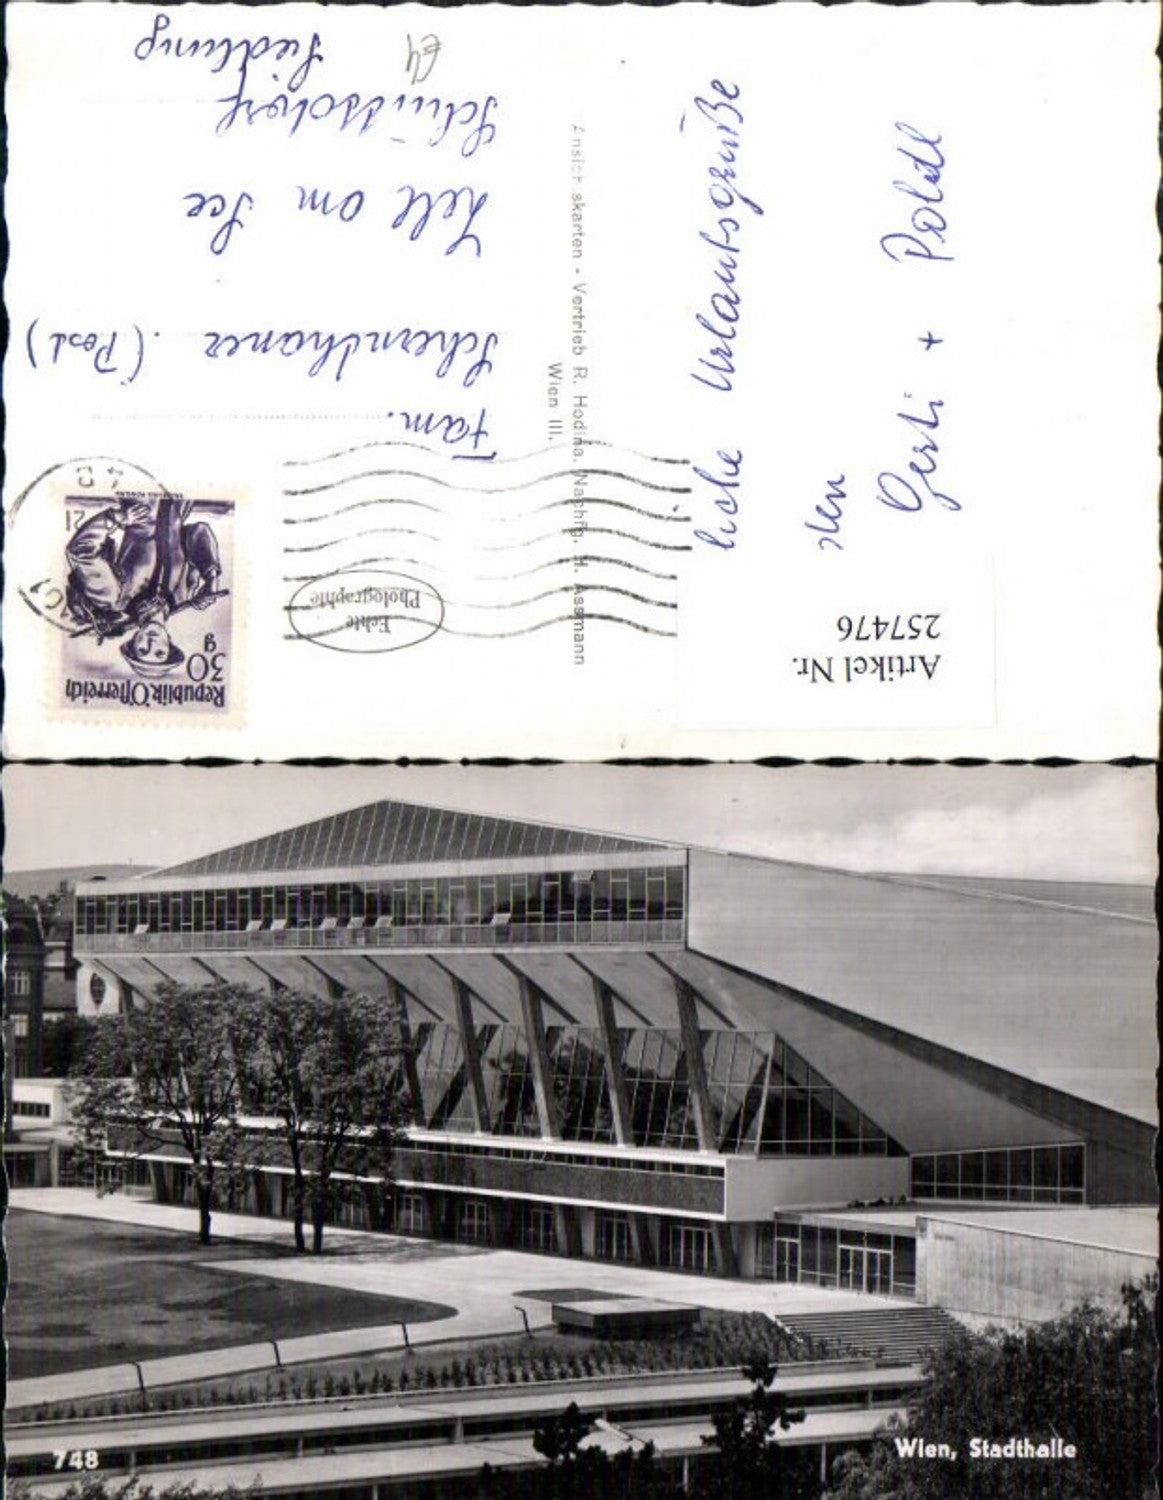 liche Urlaubsgrüße
den
Gerti + Poldl
Ansichtskarten - Vertrieb R. Hodina, Nachfg. H. Assmann
Wien III.
Artikel Nr.
257476
Republik Österreich
30
g
Echte
Photographie
Fam.
(Post)
Zell am See
Schüttdorf
Siedlung
748
Wien, Stadthalle